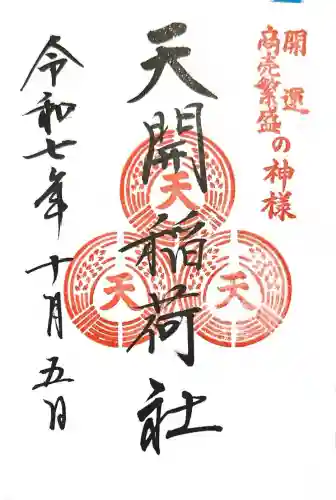 開運
商売繁盛の神様
天開稲荷社
天
天
天
令和七年十月五日